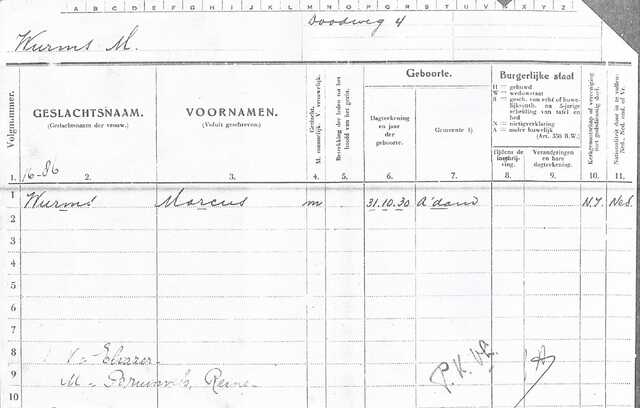 A B C D E F G H I J K L M N O P Q R S T U V W X Y Z
Doodweg 4
Wurms M.
Volgnummer.
GESLACHTSNAAM.
(Geslachtsnaam der vrouw.)
VOORNAMEN.
(Voluit geschreven).
Geslacht.
M. mannelijk V. vrouwelijk.
Betrekking der leden tot het
hoofd van het gezin.
Geboorte.
Dagteekening
en jaar
der
geboorte.
Gemeente 1)
Burgerlijke staat
H = gehuwd
W = weduwstaat
S = gesch. van echt of huwe-
lijksontb. na 5-jarige
scheiding van tafel en
bed
X = nietigverklaring
A = ander huwelijk
(Art. 550 B.W.)
Tijdens de
inschrij-
ving.
Veranderingen
en hare
dagteekening.
Kerkgenootschap of vereeniging
met godsdienstig doel.
Nationaliteit door in te vullen:
Ned., Ned. ond. of Vr.
1. 2. 3. 4. 5. 6. 7. 8. 9. 10. 11.
16-86
1 Wurms Marcus m 31.10.30 A'dam N.I. Ned.
2
3
4
5
6
7
8 V = Eliazer
9 M = Reine
10
P.K.